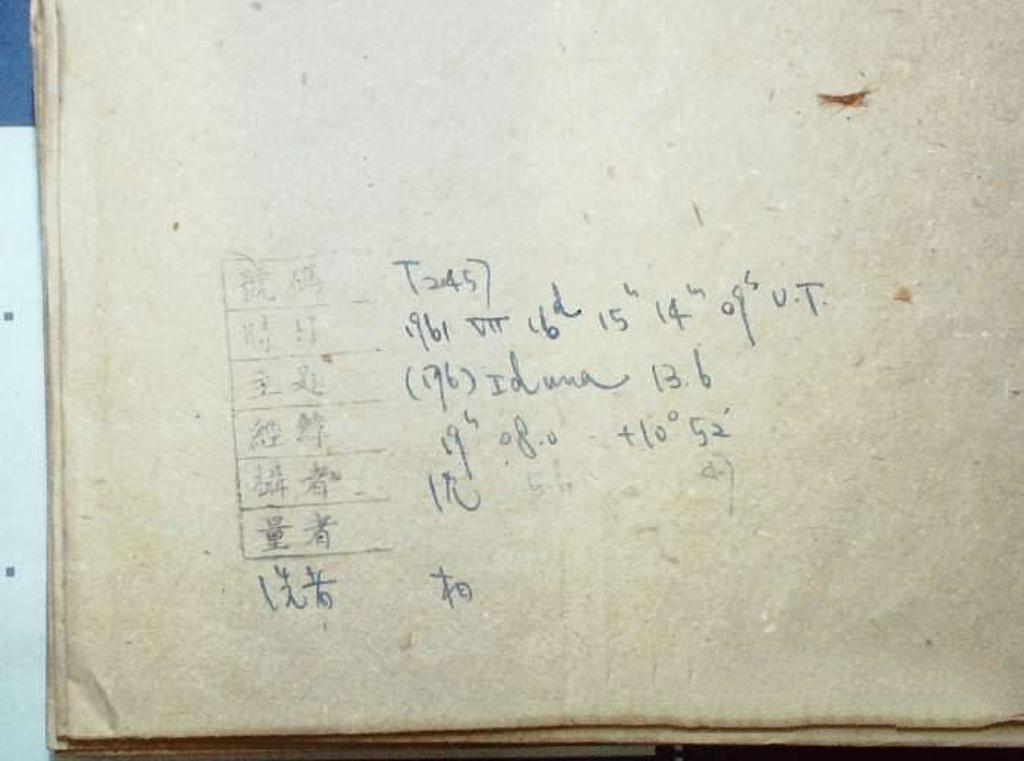 號碼 T2457
時刻 1961 VII 16d 15h 14m 09s U.T.
主題 (176) Iduna 13.6
經緯 19h 08.0 +10° 52'
攝者 沈
量者
洗者 柏